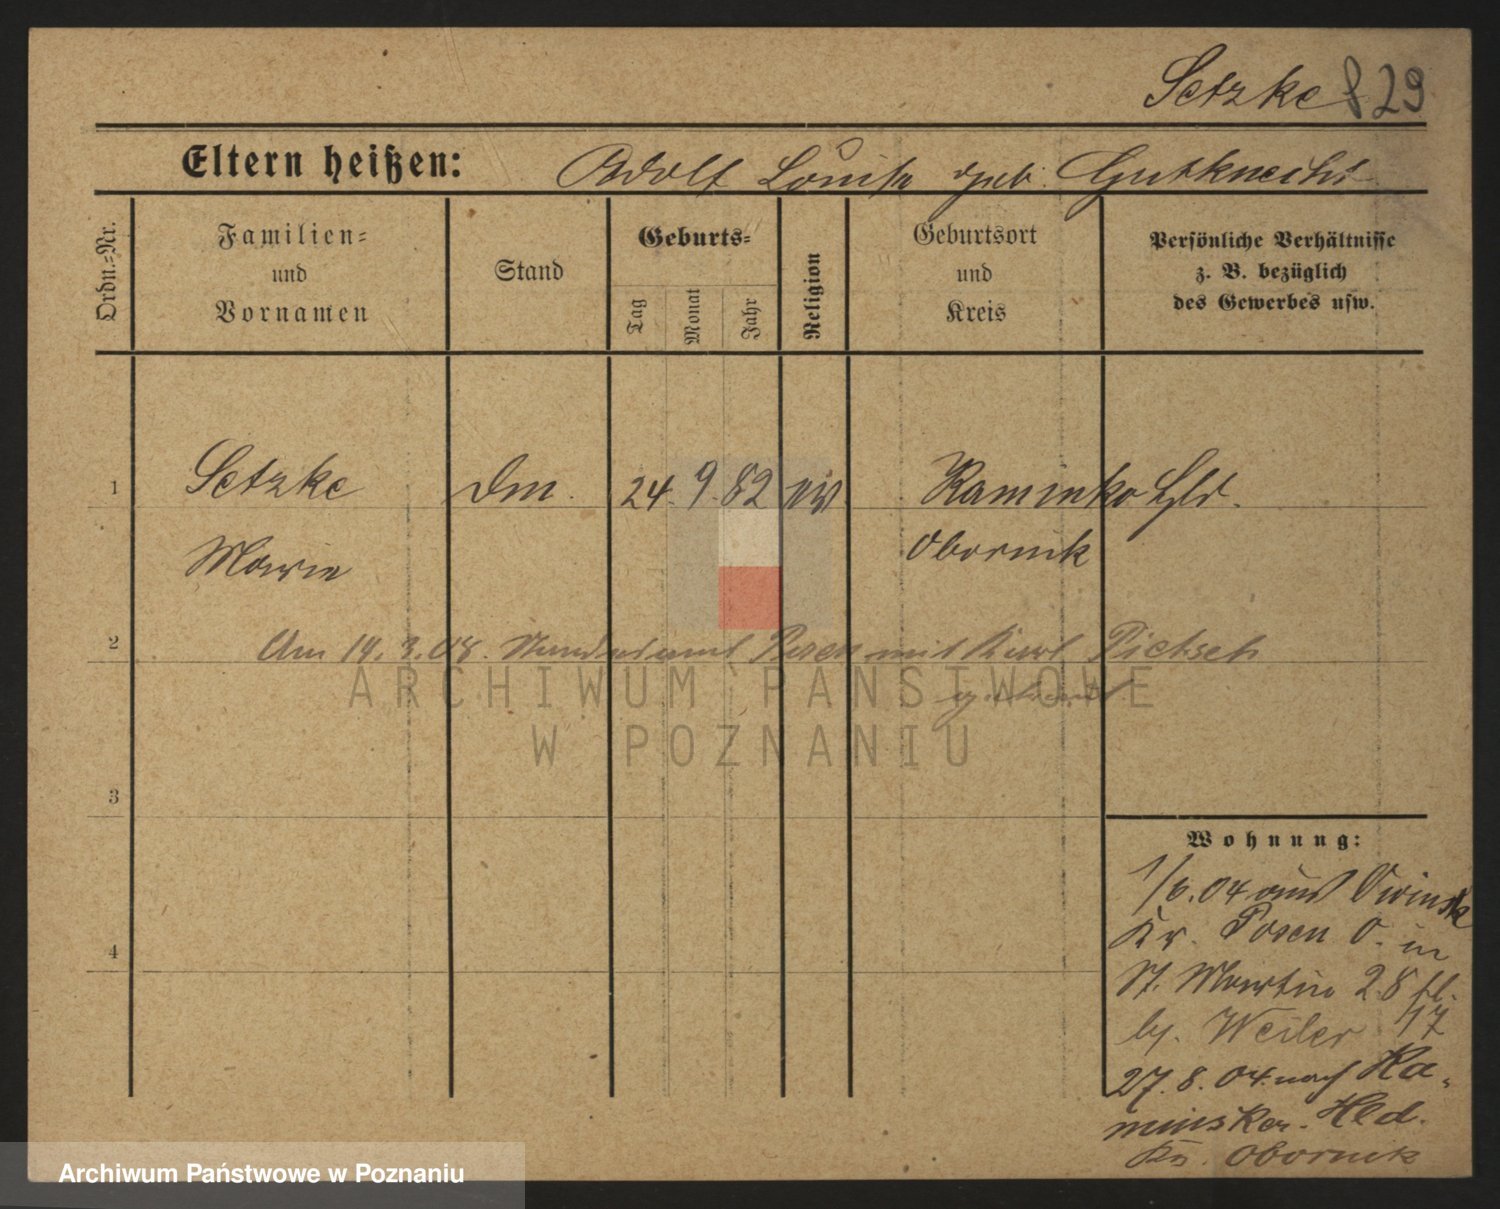 Setzke 829
Eltern heißen: Adolf Louise geb. Gutknecht
Ordn.=Nr.
Familien= und Vornamen
Stand
Geburts= Tag Monat Jahr
Religion
Geburtsort und Kreis
Persönliche Verhältnisse z. B. bezüglich des Gewerbes usw.
1 Setzke Dm. 24. 9. 82 Kaminko Hld.
Marie Obornik
2
Am 19. 3. 08. Standesamt Posen mit Karl Pietsch
getraut
ARCHIWUM PAŃSTWOWE
W POZNANIU
3
4
Wohnung:
1/6. 04 aus Owinsk
Kr. Posen O. in
St. Martin 28
by. Weiler
27. 8. 04. nach Ka-
minsker. Hld.
Kr. Obornik
Archiwum Państwowe w Poznaniu